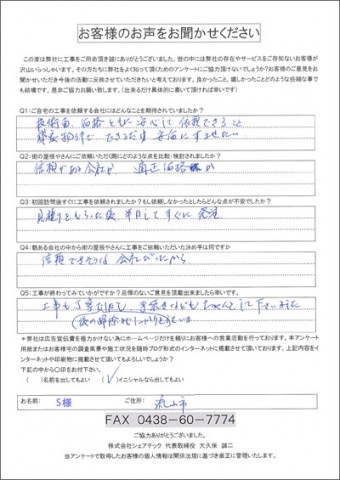 お客様のお声をお聞かせください
この度は弊社に工事をご用命頂き誠にありがとうございました。世の中には弊社の存在やサービスをご存知ないお客様が
沢山いらっしゃいます。その方たちに弊社をよく知って頂くためのアンケートにご協力頂けないでしょうか？お客様のご意見をお聞
かせいただき今後の活動に反映させていただきたいと考えております。良かったこと、嬉しかったことどのような些細な事で
も結構です。是非ご協力お願い致します。（出来るだけ具体的に書いて頂ければ幸いです）
Q1:ご自宅の工事を依頼する会社にはどんなことを期待されていましたか？
技術面、価格ともに安心して依頼できること
できるだけ安価に
Q2:街の屋根やさんにご依頼いただく際にどのような点を比較・検討されましたか？
信頼がある会社か 適正価格か
Q3:初回訪問後すぐに工事を依頼されましたか？もし依頼しなかったとしたらどんな点が不安でしたか？
見積りをもらった後、すぐに発注
Q4:数ある会社の中から街の屋根やさんに工事をご依頼いただいた決め手は何ですか
信頼できそうな会社だったから
Q5:工事が終わってみていかがですか？忌憚のないご意見を頂戴出来ましたら幸いです。
工事も丁寧な対応で、
＊弊社は広告宣伝費を極力かけない為にホームページだけを頼りにお客様への営業活動を行っております。本アンケート
用紙またはお客様宅の調査風景や施工状況を随時ブログ形式のインターネットに掲載させて頂いております。上記内容をイ
ンターネットや印刷物に掲載させて頂いてもよろしいでしょうか？
下記の中から○印をお付下さい。
（ ）名前を出してもよい （✓）イニシャルなら出してもよい
お名前： S様 ご住所： 流山市
FAX 0438-60-7774
ご協力ありがとうございました。
株式会社シェアテック 代表取締役 大久保 誠二
当アンケートで取得したお客様の個人情報は関係法規に基づき厳正に管理いたします。